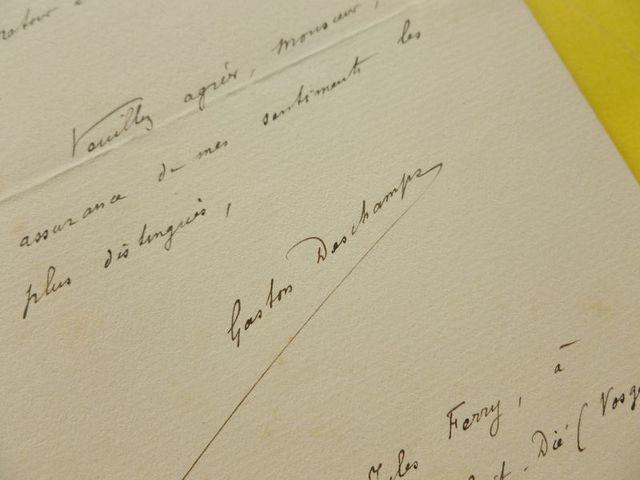 retour
Veuillez agréer, Monsieur,
assurance de mes sentiments les
plus distingués,
Gaston Deschamps
Jules Ferry, à
Dié (Vosg